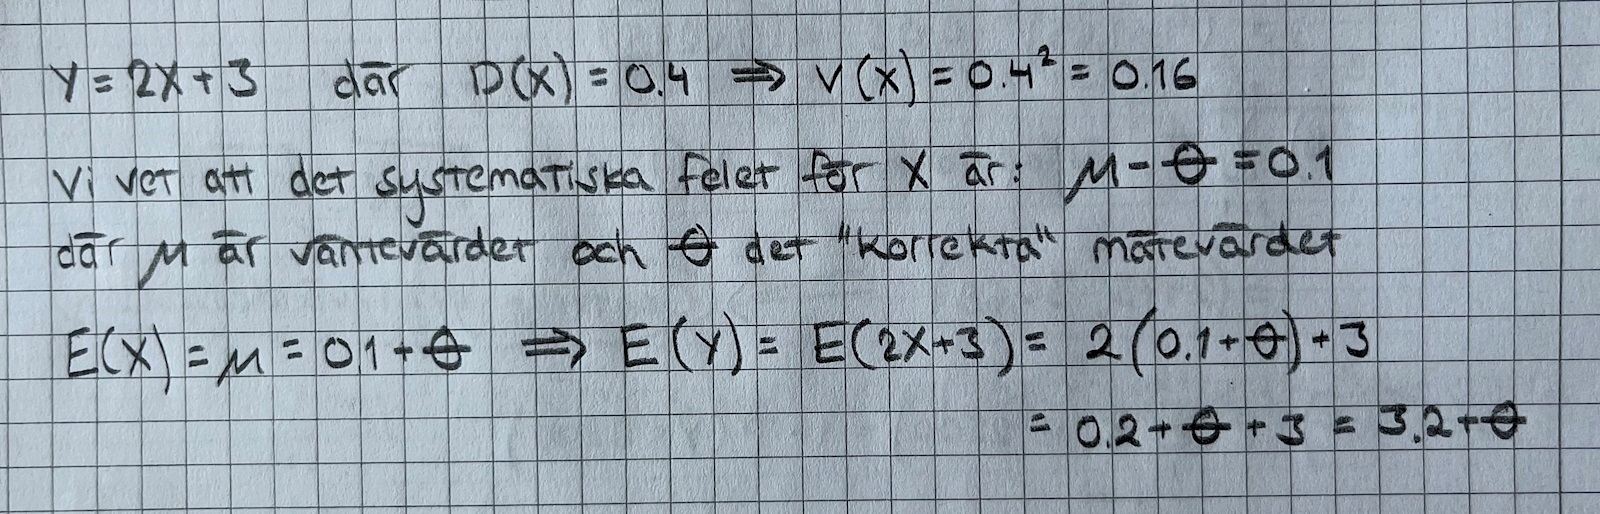 Y = 2X + 3 där D(X) = 0.4 ⇒ V(X) = 0.4² = 0.16
Vi vet att det systematiska felet för X är: μ - θ = 0.1
där μ är väntevärdet och θ det "korrekta" mätevärdet
E(X) = μ = 0.1 + θ ⇒ E(Y) = E(2X+3) = 2(0.1+θ) + 3
= 0.2 + θ + 3 = 3.2 + θ